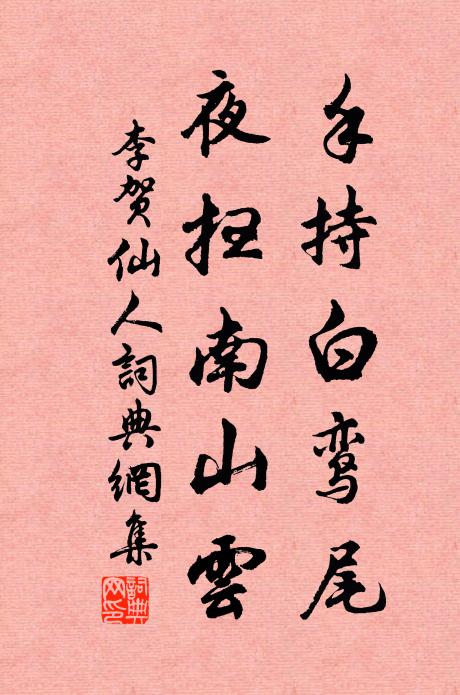 手持白鸾尾
夜扫南山雲
李贺仙人詞典網集
詞典网印